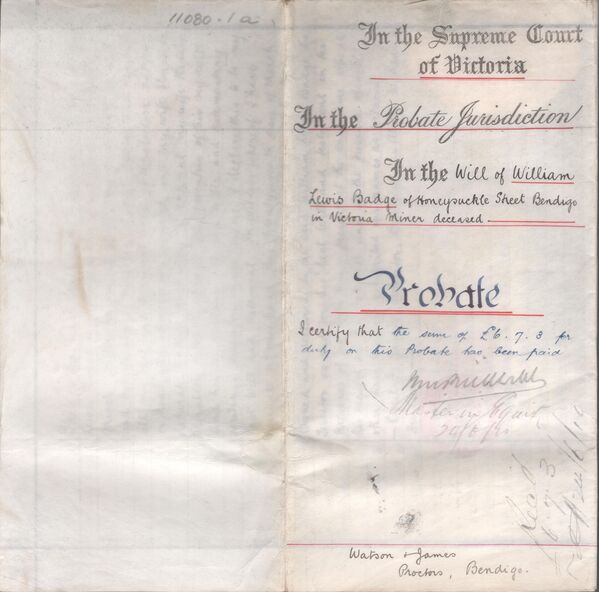 11080.1a
In the Supreme Court
of Victoria
In the Probate Jurisdiction
In the Will of William
Lewis Badge of Honeysuckle Street Bendigo
in Victoria Miner deceased
Probate
I certify that the sum of £6.7.3 for
duty on this Probate has been paid
Master in Equity
Rec'd
6.7.3
Watson & James
Proctors, Bendigo.